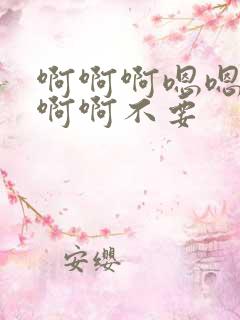 啊啊啊嗯嗯
啊啊不要
安缨